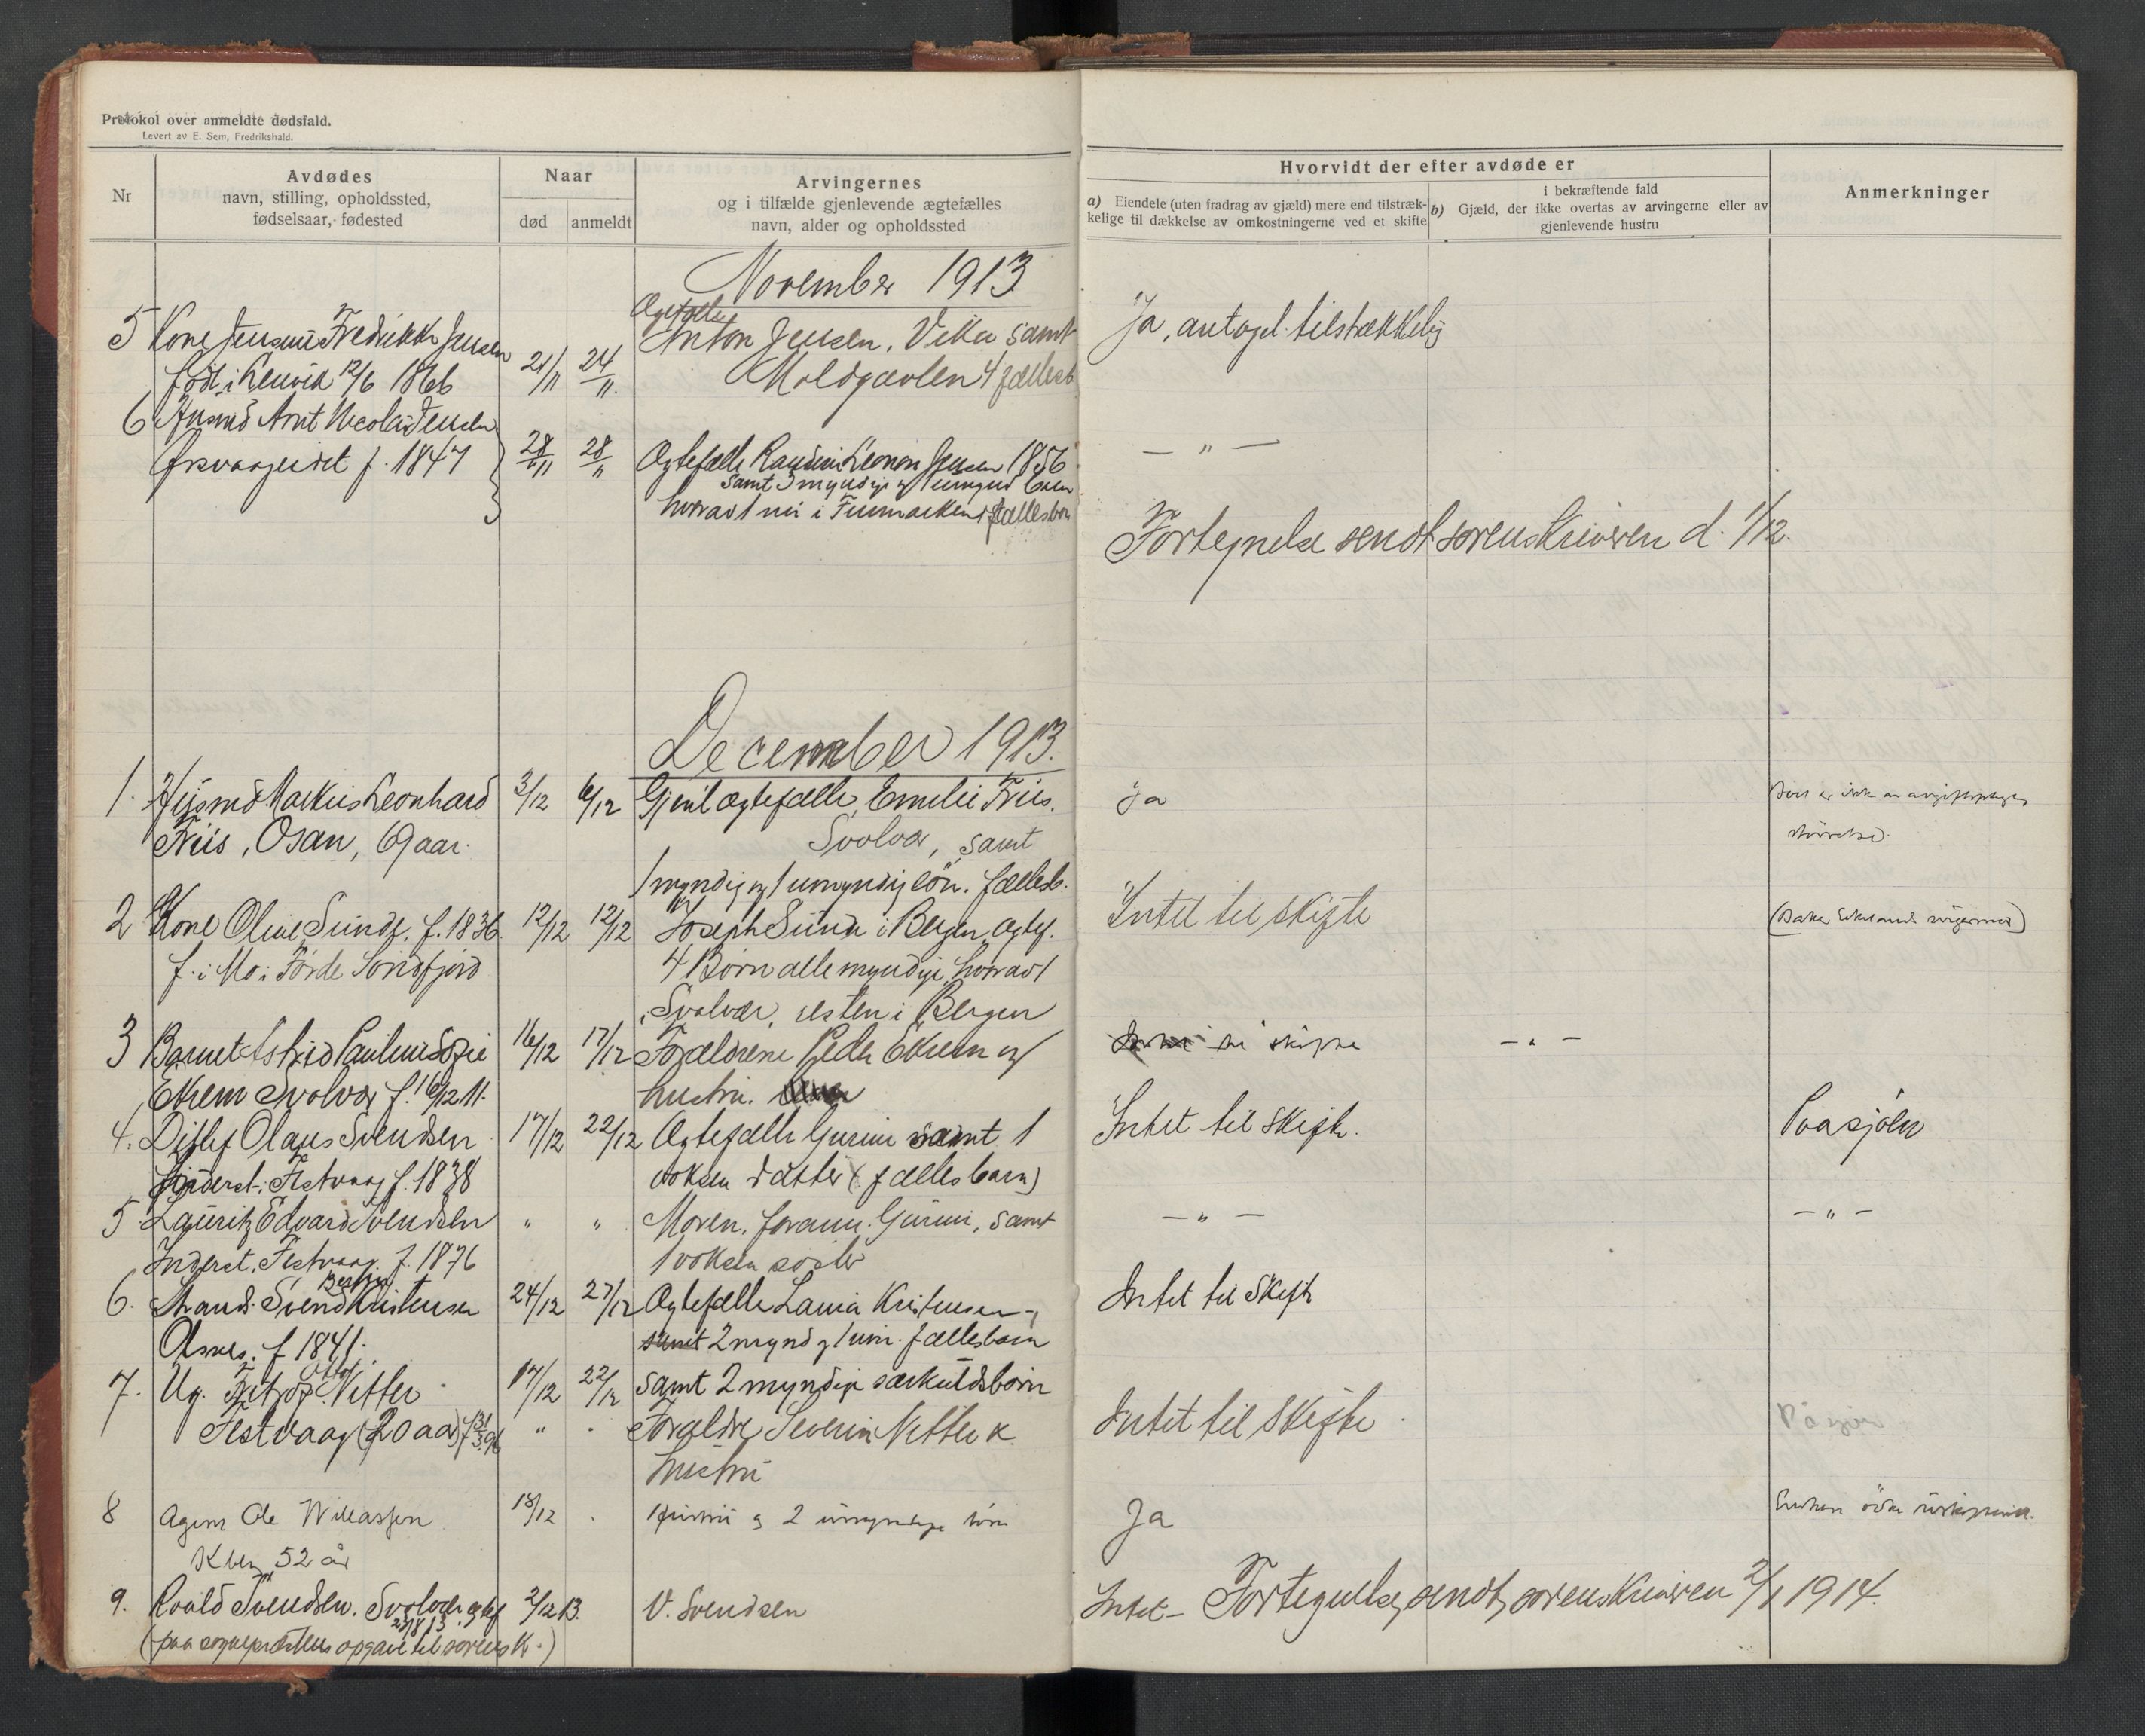 Protokol over anmeldte dødsfald.
Levert av E. Sem, Fredrikshald.
Nr
Avdødes
navn, stilling, opholdssted,
fødselsaar, fødested
Naar
død
anmeldt
Arvingernes
og i tilfælde gjenlevende ægtefælles
navn, alder og opholdssted
Hvorvidt der efter avdøde er
a) Eiendele (uten fradrag av gjæld) mere end tilstræk-
kelige til dækkelse av omkostningerne ved et skifte
i bekræftende fald
b) Gjæld, der ikke overtas av arvingerne eller av
gjenlevende hustru
Anmerkninger
November 1913
5 Kone Fredrikke Jensen
født i Lenvik 12/6 1866
21/11 24/11.
Ægtefælle
Anton Jensen, Vika samt
Moldgavlen 4 fællesb
Ja, antagel. tilstrækkelig
6 Husmd Arnt Nicolai Jensen
f. 1847
28/11 28/11
Ægtefælle Leonora Jensen 1856
samt 3 myndige og 1 umynd
hvorav 1 i Finmarken, fællesbørn
— " —
Fortegnelse sendt sorenskriveren d. 1/12.
December 1913.
1. Husmd Markus Leonhard
Friis, Osan, 69 aar.
3/12 6/12
Gjenl ægtefælle, Emelie Friis.
Svolvær, samt
1 myndig og 1 umyndig søn. fællesb.
Ja
Boet er ikke av avgiftspligtig
størrelse.
2 Kone Oline Sunde. f. 1836.
f. i Mo i Førde Søndfjord
12/12 12/12
Joseph Sunde i Bergen, ægtef.
4 Børn alle myndige, hvorav 1
i Svolvær, resten i Bergen
Intet til skifte
3 Barnet Astrid Pauline Sofie
Ekrem Svolvær f. 16/12 11.
16/12 17/12
Forældrene Peder Ekrem og
hustru.
Intet til skifte
— " —
4. Ditlef Olaus Svendsen
Inderst, Festvaag f. 1838
17/12 22/12
Ægtefælle Gurine samt 1
voksen datter (fællesbarn)
Intet til skifte.
Paa sjøen
5 Lauritz Edvard Svendsen
Inderst, Festvaag. f. 1876
" "
Moren, forann. Gurine, samt
1 voksen søster
— " —
— " —
6. Strands. Svend Berhju Kristensen
f 1841.
24/12 27/12
Ægtefælle Laura Kristensen
samt 2 mynd og 1 um. fællesbarn
samt 2 myndige særkuldsbørn
Intet til Skifte
7. Ug. Fritjof Olaf Vetter
Festvaag (20 aar)
17/12 22/12
" "
Forældre Severin Vetter &
hustru
Intet til skifte.
På sjøen
8 Agent Ole Willassen
Kbv, 52 år
18/12 .
Hustru og 2 umyndige børn
Ja
Enken
9. Roald Svendsen. Svolvær
(paa sogneprestens opgave til sorensk.)
2/12 13.
V. Svendsen
Intet - Fortegnelse sendt sorenskriveren 2/1 1914.